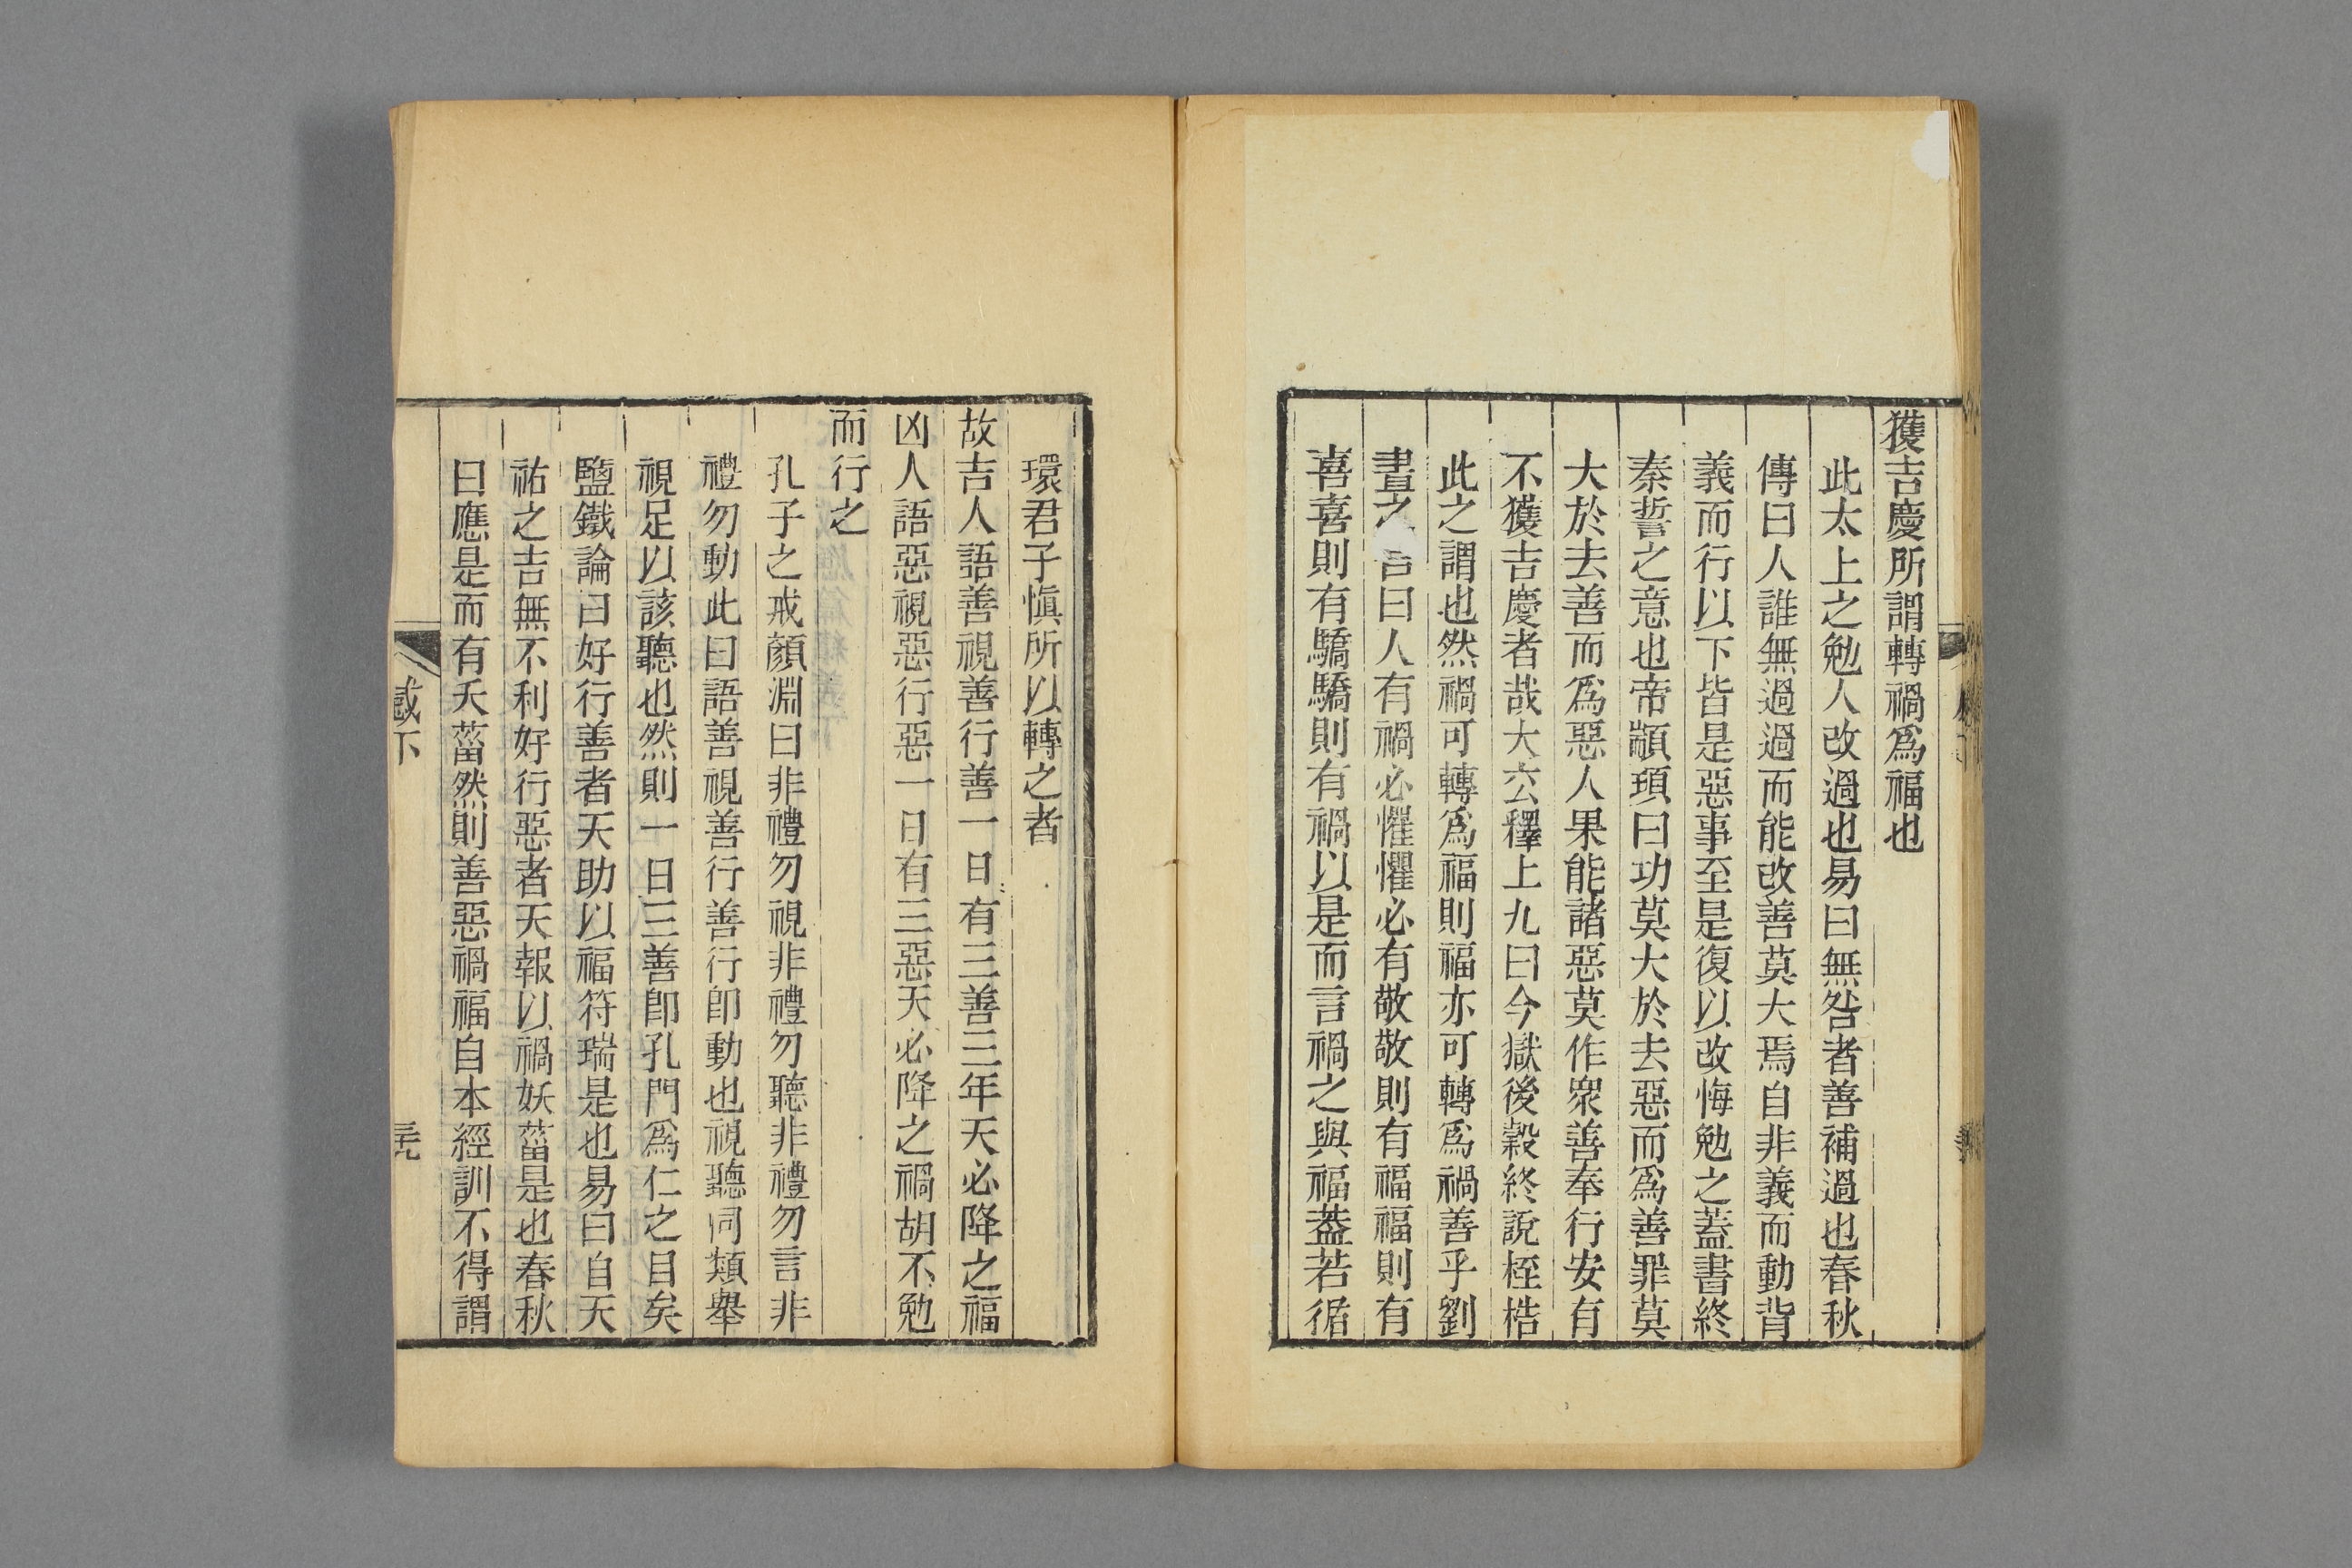 獲吉慶所謂轉禍爲福也
此太上之勉人改過也易曰無咎者善補過也春秋
傳曰人誰無過過而能改善莫大焉自非義而動背
義而行以下皆是惡事至是復以改悔勉之蓋書終
秦誓之意也帝顓頊曰功莫大於去惡而爲善罪莫
大於去善而爲惡人果能諸惡莫作衆善奉行安有
不獲吉慶者哉大玄釋上九曰今獄後穀終說桎梏
此之謂也然禍可轉爲福則福亦可轉爲禍善乎劉
晝之言曰人有禍必懼懼必有敬敬則有福福則有
喜喜則有驕驕則有禍以是而言禍之與福蓋若循
環君子愼所以轉之者
故吉人語善視善行善一日有三善三年天必降之福
凶人語惡視惡行惡一日有三惡天必降之禍胡不勉
而行之
孔子之戒顏淵曰非禮勿視非禮勿聽非禮勿言非
禮勿動此曰語善視善行善行卽動也視聽同類舉
視足以該聽也然則一日三善卽孔門爲仁之目矣
鹽鐵論曰好行善者天助以福符瑞是也易曰自天
祐之吉無不利好行惡者天報以禍妖菑是也春秋
曰應是而有天菑然則善惡禍福自本經訓不得謂
感下
三九